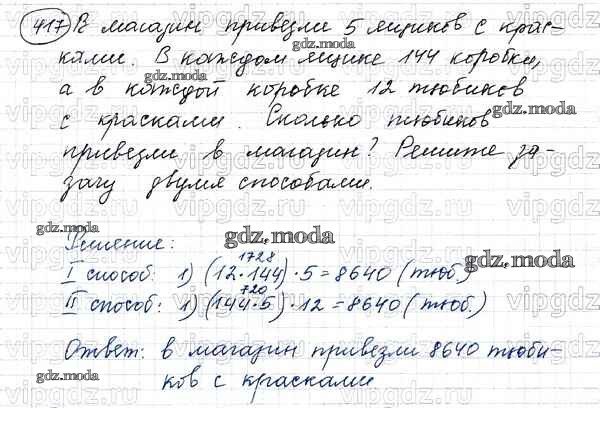 417 В магазин привезли 5 ящиков с крас-
ками. В каждом ящике 144 коробки,
а в каждой коробке 12 тюбиков
с красками. Сколько тюбиков
привезли в магазин? Решите за-
дачу двумя способами.
Решение:
1728
I способ: 1) (12·144)·5=8640 (тюб.)
720
II способ: 1) (144·5)·12=8640 (тюб.)
Ответ: в магазин привезли 8640 тюби-
ков с красками
gdz.moda
vipgdz.ru